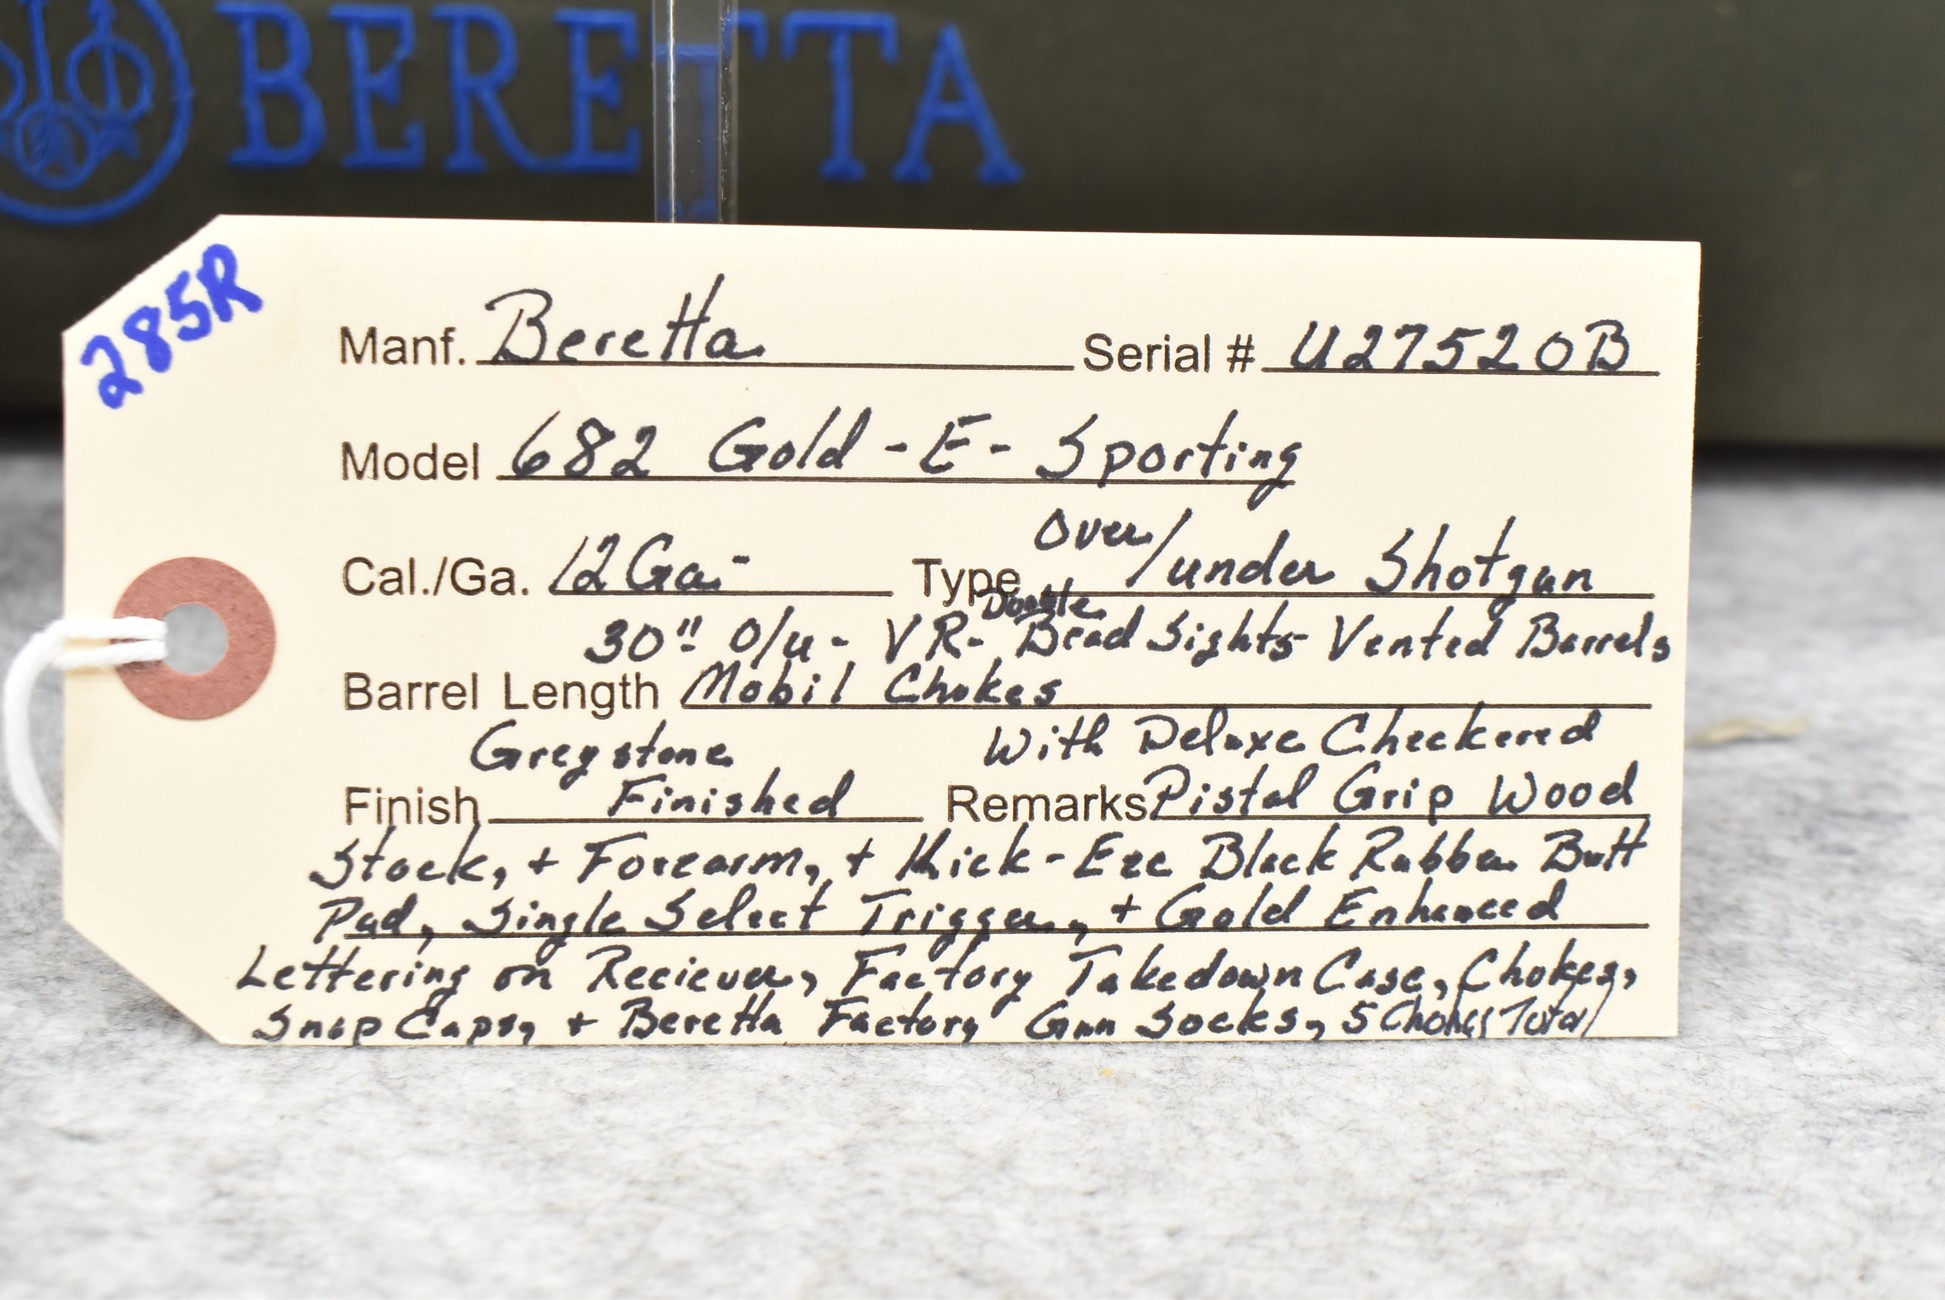 BERETTA
285R
Manf. Beretta Serial # U27520B
Model 682 Gold - E - Sporting
Over/under Shotgun
Cal./Ga. 12 Ga- Type
Double
30" O/u - VR- Bead Sights- Vented Barrels
Barrel Length Mobil Chokes
Greystone With Deluxe Checkered
Finish Finished Remarks Pistol Grip Wood
Stock, + Forearm, + Kick-Eze Black Rubber Butt
Pad, Single Select Trigger, + Gold Enhanced
Lettering on Reciever, Factory Takedown Case, Chokes,
Snap Caps, + Beretta Factory Gun Socks, 5 Chokes Total